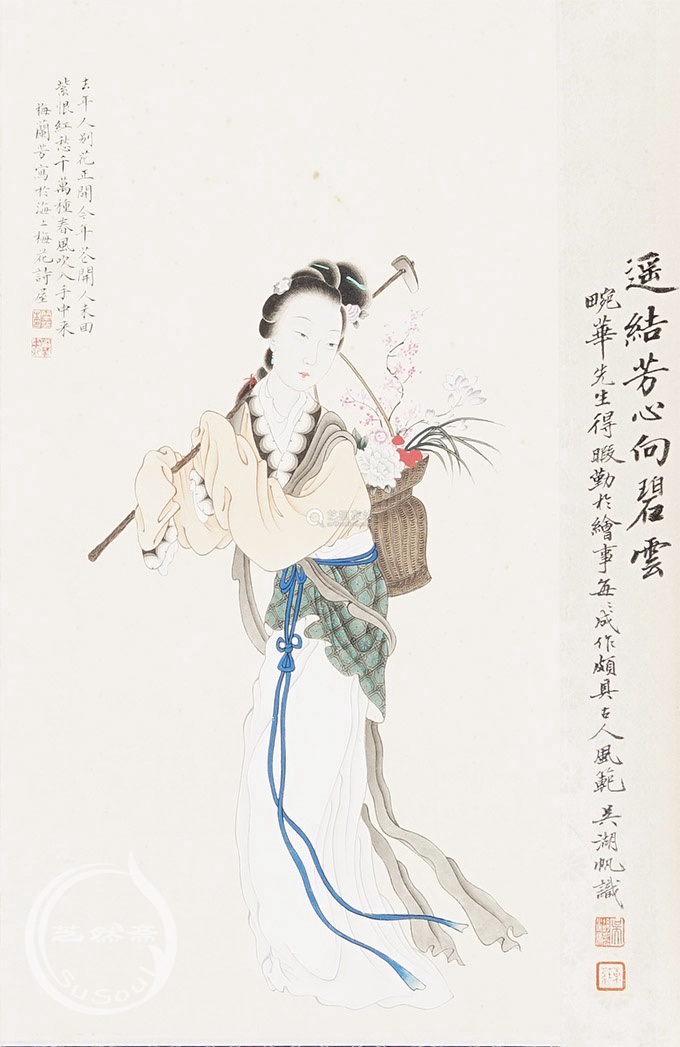 遥結芳心向碧雲
畹華先生得暇勤於繪事每〻成作頗具古人風範 吴湖帆識
去年人别花正開今年花開人未回
紫恨紅愁千萬種春風吹入手中来
梅蘭芳寫於海上梅花詩屋
SuSoul